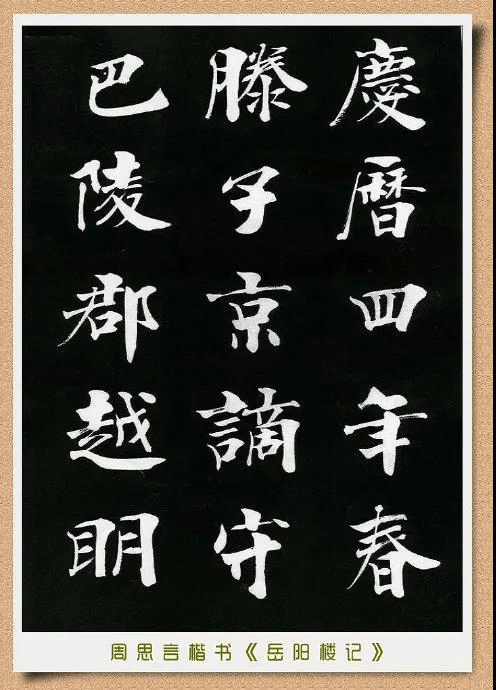 慶曆四年春
滕子京謫守
巴陵郡越明
周思言楷书《岳阳楼记》